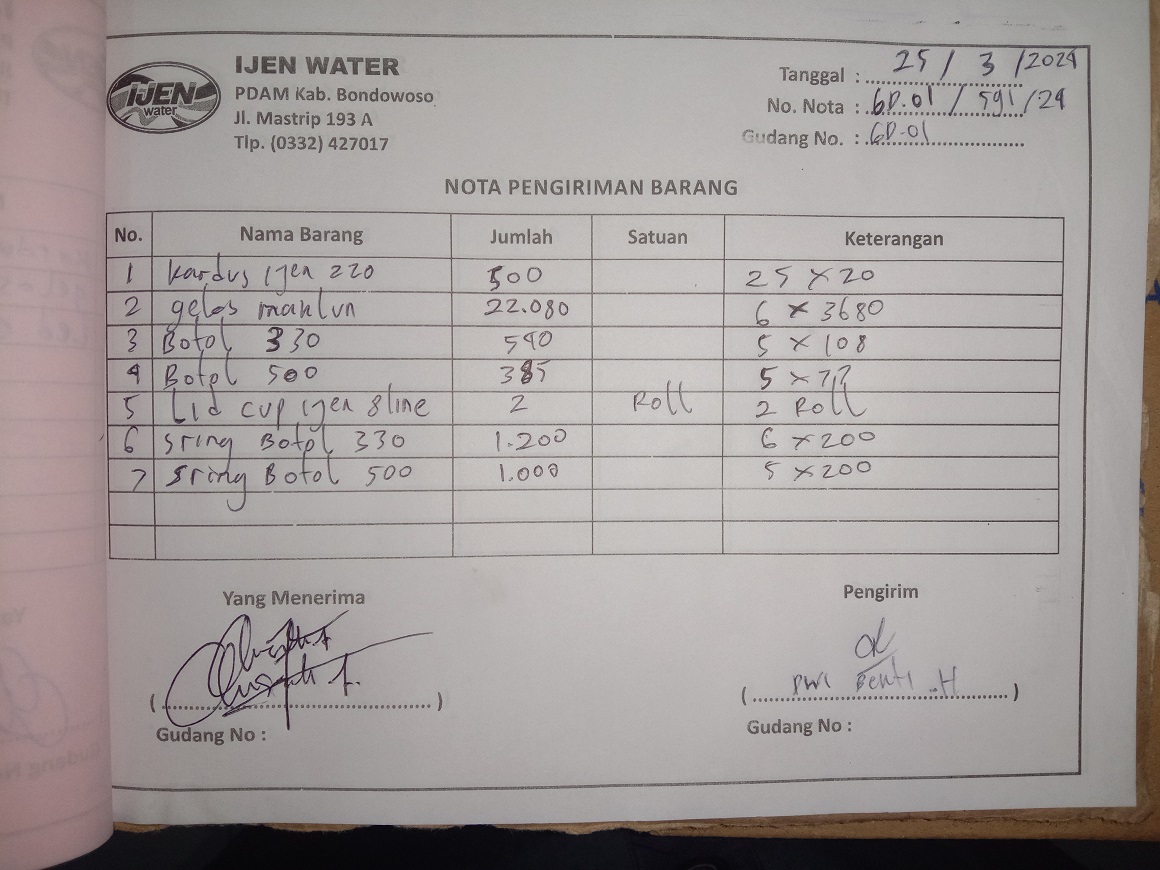 IJEN
water
IJEN WATER
PDAM Kab. Bondowoso
Jl. Mastrip 193 A
Tlp. (0332) 427017
Tanggal : 25 / 3 / 2024
No. Nota : GD.01 / 591 / 24
Gudang No. : GD-01
NOTA PENGIRIMAN BARANG
No. Nama Barang Jumlah Satuan Keterangan
1 Kardus Ijen 220 500 25 x 20
2 gelas maklun 22.080 6 x 3680
3 Botol 330 540 5 x 108
4 Botol 500 385 5 x 77
5 Lid cup Ijen 8 line 2 Roll 2 Roll
6 Sring Botol 330 1.200 6 x 200
7 Sring Botol 500 1.000 5 x 200
Yang Menerima
Pengirim
Gudang No :
Gudang No :